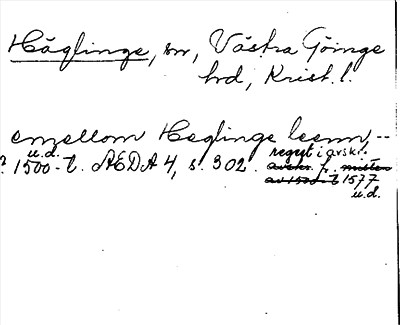 Häglinge, sn, Västra Göinge
hrd, Krist. l.
emellom Heglinge leenn, --
u.d.
? 1500-t. ÆDA 4, s. 302. regist i avskr.
avskr. f. mitten
av 1500-t 1577
u.d.